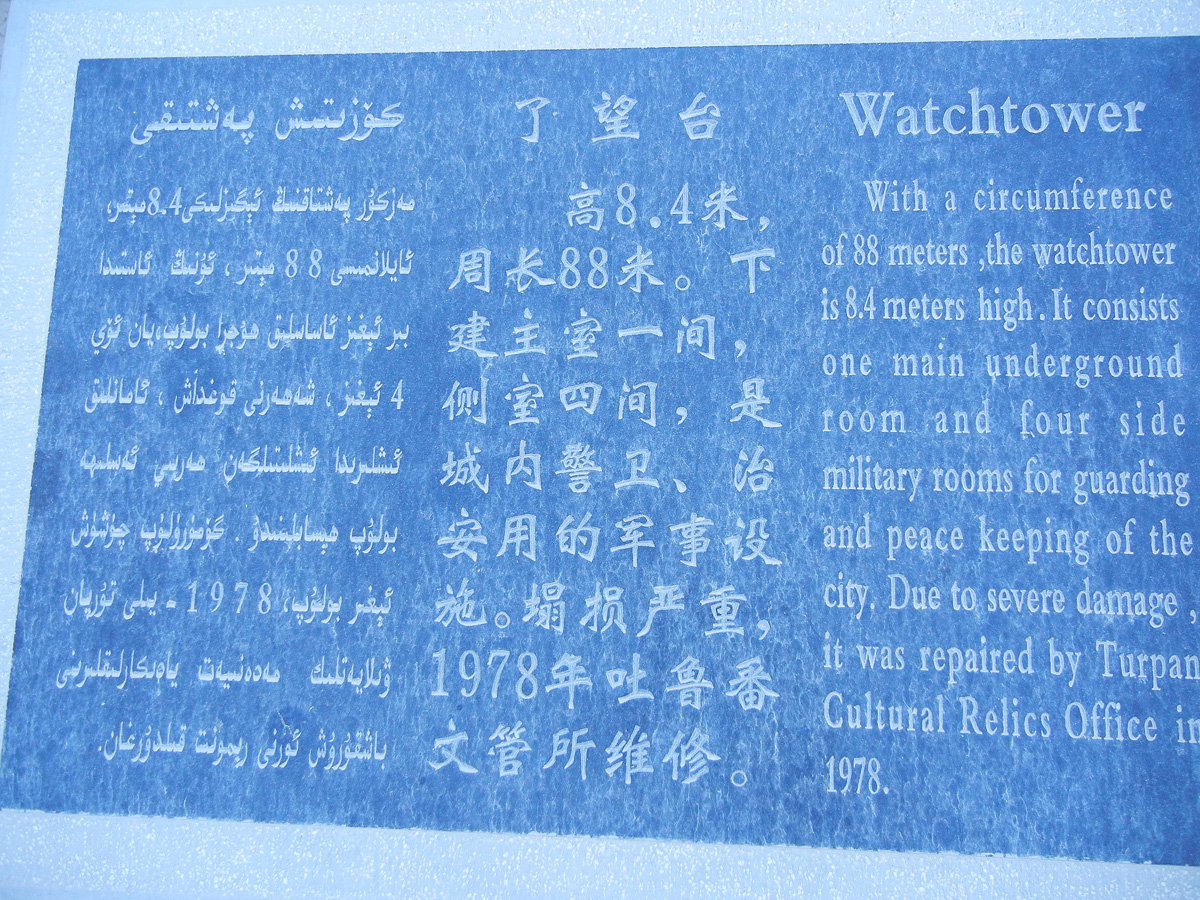 كۆزىتىش پەشتىقى
مەزكۇر پەشتاقنىڭ ئېگىزلىكى8.4مېتىر،
ئايلانمىسى 88 مېتىر، ئۇنىڭ ئاستىدا
بىر ئېغىز ئاساسلىق ھۇجرا بولۇپ،يان ئۆي
4 ئېغىز، شەھەرنى قوغداش، ئامانلىق
ئىشلىرىدا ئىشلىتىلگەن ھەربىي ئەسلىھە
بولۇپ ھېسابلىنىدۇ. گۇمۇرۇلۇپ چۈشۈش
ئېغىر بولۇپ، 1978-يىلى تۇرپان
ۋىلايەتلىك مەدەنىيەت يادىكارلىقلىرىنى
باشقۇرۇش ئورنى رېمونت قىلدۇرغان.
了望台
高8.4米，
周长88米。下
建主室一间，
侧室四间，是
城内警卫、治
安用的军事设
施。塌损严重，
1978年吐鲁番
文管所维修。
Watchtower
With a circumference
of 88 meters ,the watchtower
is 8.4 meters high . It consists
one main underground
room and four side
military rooms for guarding
and peace keeping of the
city. Due to severe damage ,
it was repaired by Turpan
Cultural Relics Office in
1978.